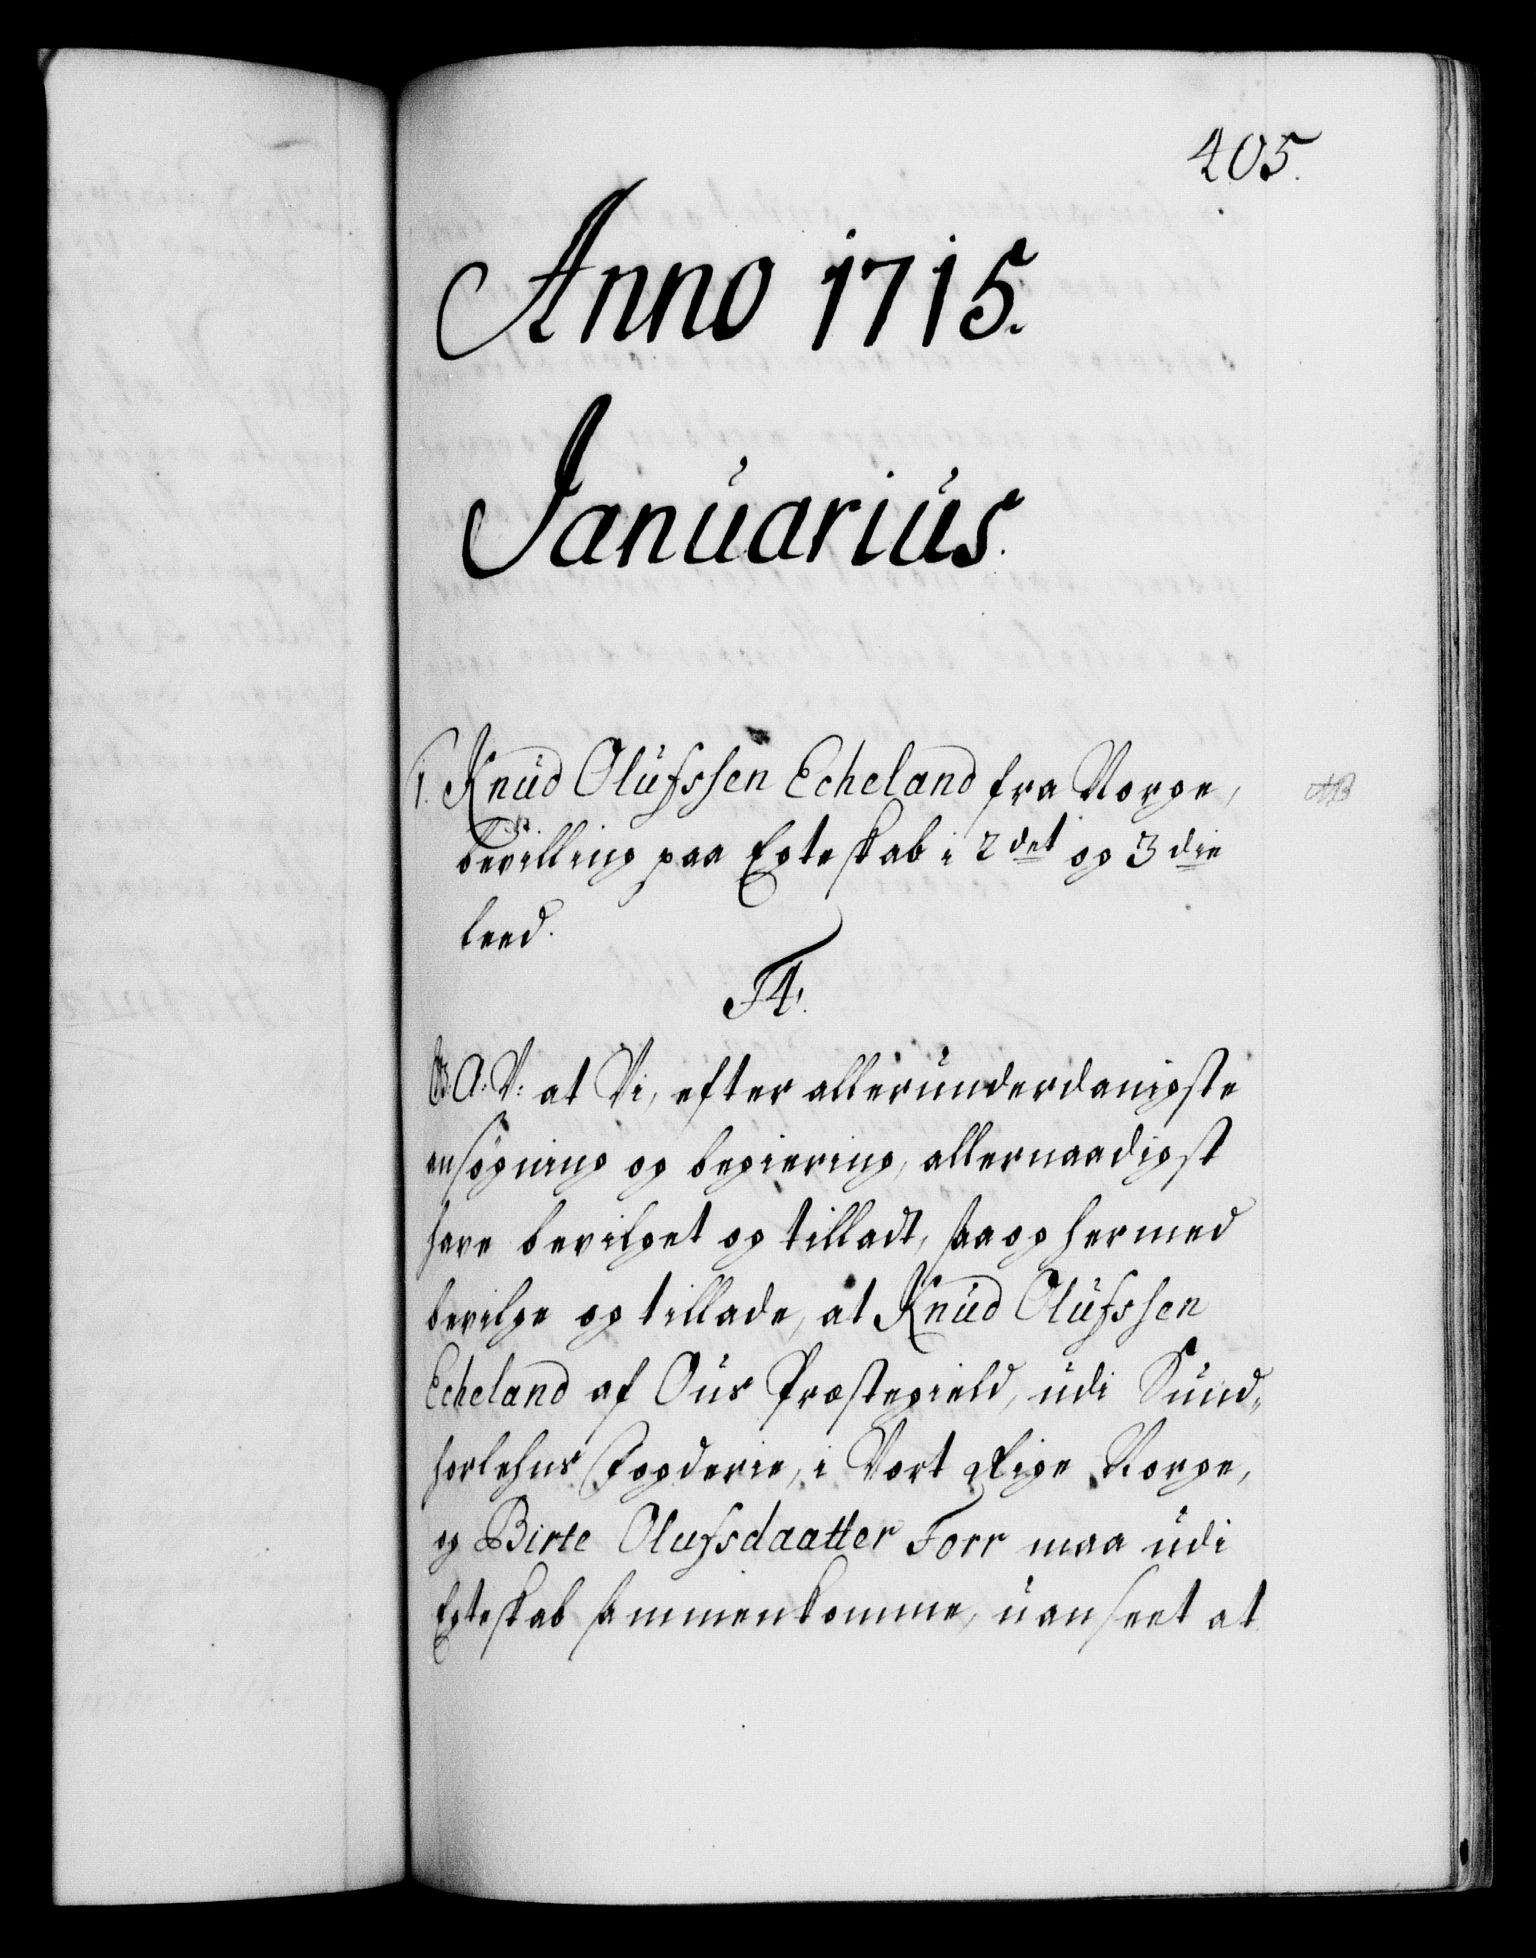 405.
Anno 1715.
Januarius.
1. Knud Olufssen Echeland fra Norge,
bevilling paa Egteskab i 2det og 3die
leed.
F4.
G. A. V: at Vi, efter allerunderdanigste
ansögning og begiering, allernaadigst
have bevilget og tilladt, saa og hermed
bevilge og tillade, at Knud Olufssen
Echeland af Ous Præstegield, udi Sund„
horlehns Fogderie, i Vort Rige Norge,
og Birte Olufsdaatter Torr maa udi
Egteskab sammenkomme, uanseet at